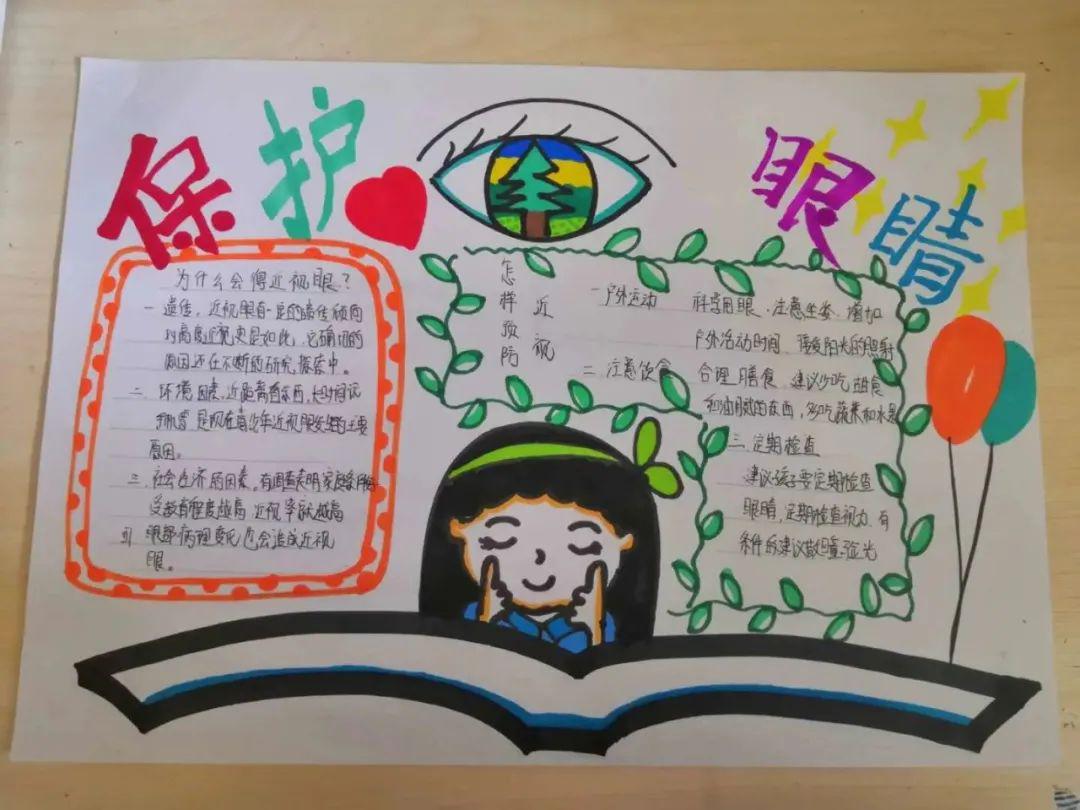 保护眼睛
为什么会得近视眼？
一 遗传，近视眼有一定的遗传倾向
对高度近视更是如此，它确切的
原因还在不断的研究探索中。
二、环境因素，近距离看东西，长时间读
书 是现在青少年近视眼发生的主要
原因。
三、社会经济的因素，有调查表明家庭
受教育程度越高，近视率就越高
四 眼部病理变化也会造成近视
眼。
怎样预防
近视
一户外运动 科学用眼，注意坐姿，增加
户外活动时间，接受阳光的照射
二、注意饮食 合理膳食，建议少吃甜食
和油腻的东西，多吃蔬菜和水果
三、定期检查
建议孩子要定期检查
眼睛，定期检查视力，有
条件的建议散瞳验光